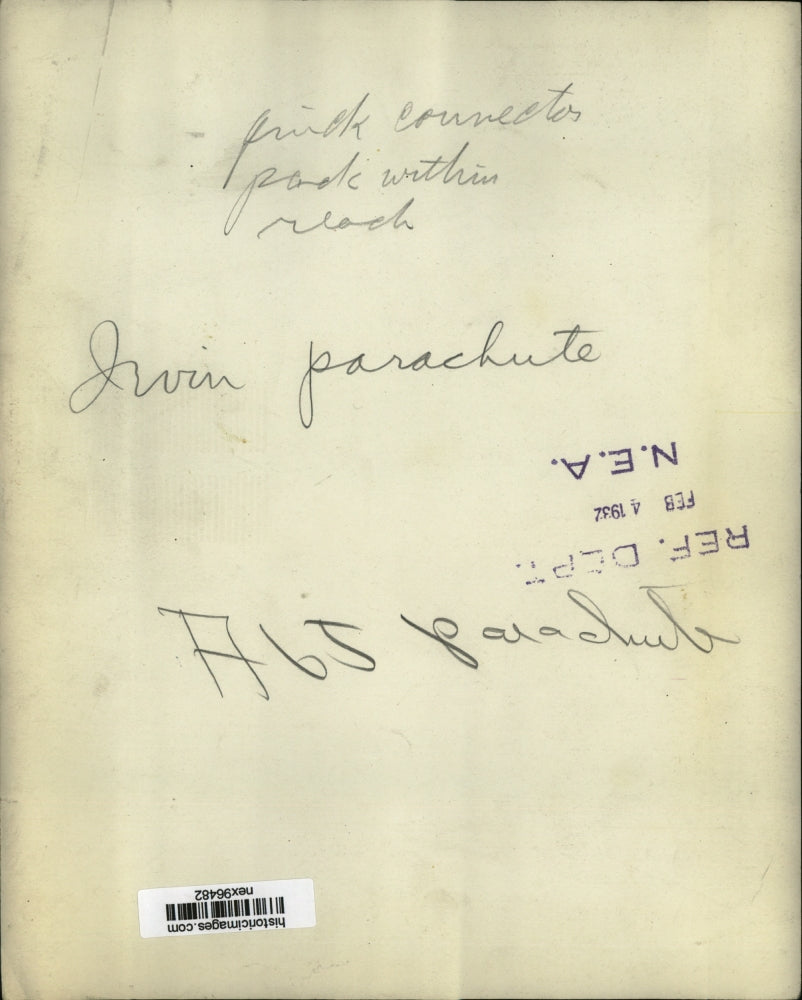 quick connector
pack within
reach
Irvin parachute
N.E.A.
FEB 4 1932
REF. DEPT.
A65 parachute
nex96482
historicimages.com